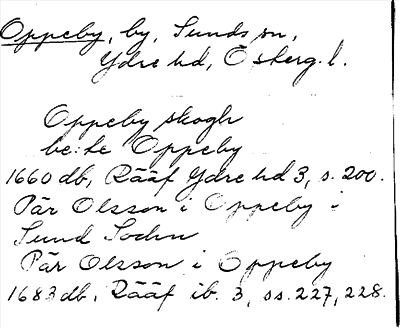 Oppeby, by, Sunds sn,
Ydre hd, Österg. l.
Oppeby skogh
be: te Oppeby
1660 db, Rääf Ydre hd 3, s. 200.
Pär Olsson i Oppeby i
Sund Sochn
Pär Olsson i Oppeby
1683 db, Rääf ib. 3, ss. 227, 228.